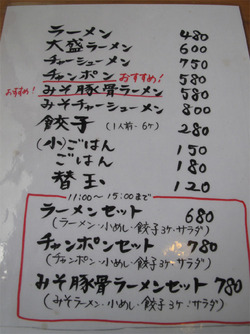 ラーメン 480
大盛ラーメン 600
チャーシューメン 750
チャンポン おすすめ! 580
おすすめ! みそ豚骨ラーメン 580
みそチャーシューメン 800
餃子(1人前・6ケ) 280
(小)ごはん 150
ごはん 180
替玉 120
11:00〜15:00まで
ラーメンセット 680
(ラーメン・小めし・餃子3ケ・サラダ)
チャンポンセット 780
(チャンポン・小めし・餃子3ケ・サラダ)
みそ豚骨ラーメンセット 780
(みそラーメン・小めし・餃子3ケ・サラダ)